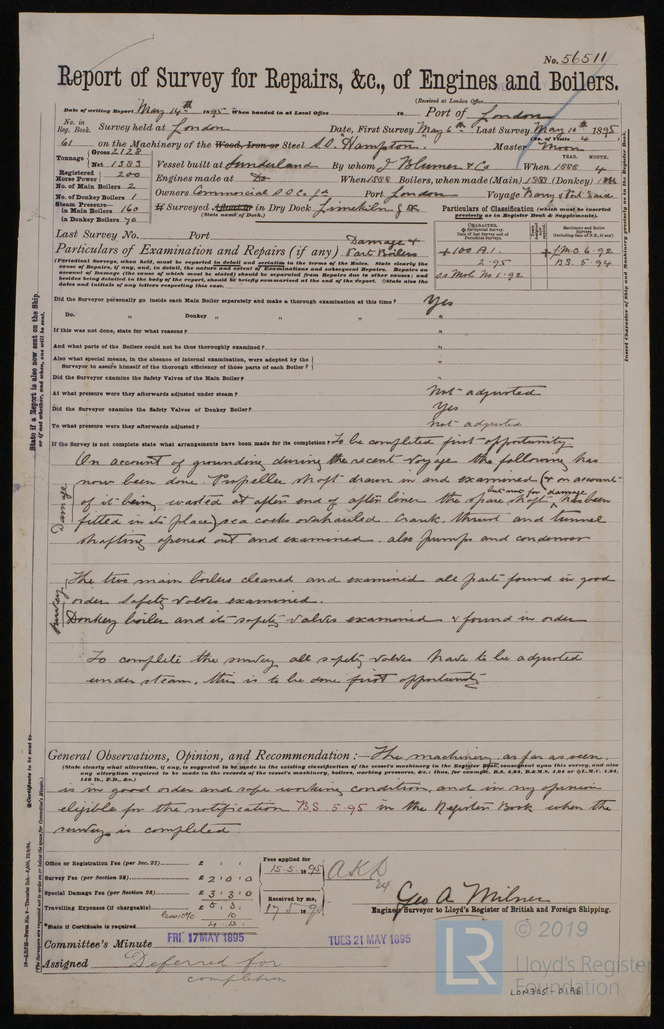 No. 56511
Report of Survey for Repairs, &c., of Engines and Boilers.
(Received at London Office
Date of writing Report May 14th 1895 When handed in at Local Office to Port of London
No. in Reg. Book. 61 Survey held at London Date, First Survey May 6th Last Survey May 10th 1895
(No. of Visits 4
on the Machinery of the Wood, Iron or Steel S.S. "Hampton" Master Moon
Tonnage Gross 2128
Net 1383
Vessel built at Sunderland By whom J Blumer & Co When 1888 4
YEAR. MONTH.
Registered Horse Power 200
Engines made at Do When 1888 Boilers, when made (Main) 1888 (Donkey) 1888
No. of Main Boilers 2
No. of Donkey Boilers 1
Owners Commercial S.S. Co. Ld Port London Voyage Barry & Port Said
Steam Pressure in Main Boilers 160
in Donkey Boilers 70
If Surveyed Afloat or in Dry Dock Limekiln
(State name of Dock.)
Particulars of Classification (which must be inserted precisely as in Register Book & Supplements).
Last Survey No. Port
Particulars of Examination and Repairs (if any) Damage & Part Boilers
CHARACTER.
Machinery and Boiler Surveys
+ 100 A.1. + LMC 6.92
2.95 BS. 5.94
(Periodical Surveys, when held, must be reported in detail and seriatim in the terms of the Rules. State clearly the cause of Repairs, if any, and, in detail, the nature and extent of Examinations and subsequent Repairs. Repairs on account of Damage (the cause of which must be stated) should be separated from Repairs due to other causes; and besides being detailed in the body of the report, should be briefly summarised at the end of the report. State also the dates and initials of any letters respecting this case.)
Did the Surveyor personally go inside each Main Boiler separately and make a thorough examination at this time? Yes
Do. " Donkey " " " "
If this was not done, state for what reasons? "
And what parts of the Boilers could not be thus thoroughly examined? "
Also what special means, in the absence of internal examination, were adopted by the Surveyor to assure himself of the thorough efficiency of those parts of each Boiler? "
Did the Surveyor examine the Safety Valves of the Main Boiler? "
At what pressure were they afterwards adjusted under steam? Not adjusted
Did the Surveyor examine the Safety Valves of Donkey Boiler? Yes
To what pressure were they afterwards adjusted? Not adjusted
If the Survey is not complete state what arrangements have been made for its completion? To be completed first opportunity
Damage
On account of grounding during the recent voyage the following has
now been done. Propeller shaft drawn in and examined (& on account
of it being wasted at after end of after liner but not for damage the spare shaft has been
fitted in its place) sea cocks overhauled. Crank, thrust and tunnel
shafting opened out and examined. also pumps and condensor
Survey
The two main boilers cleaned and examined all parts found in good
order safety valves examined.
Donkey boiler and its safety valves examined & found in order
To complete the survey all safety valves have to be adjusted
under steam, this is to be done first opportunity
General Observations, Opinion, and Recommendation :— The machinery as far as seen
(State clearly what alteration, if any, is suggested to be made in the existing classification of the vessel's machinery in the Register Book, consequent upon this survey, and also any alteration required to be made in the records of the vessel's machinery, boilers, working pressures, &c.;
is in good order and safe working condition, and in my opinion
eligible for the notification B.S. 5.95 in the Register Book when the
survey is completed
Office or Registration Fee (per Sec. 27) £
Survey Fee (per Section 28) £ 2 : 0 : 0
Special Damage Fee (per Section 28) £ 3 : 3 : 0
Travelling Expenses (if chargeable) £
State if Certificate is required
Fees applied for 15.5.1895
Received by me, 17.5.1895
Geo A Milner
Engineer Surveyor to Lloyd's Register of British and Foreign Shipping.
Committee's Minute FRI 17 MAY 1895 TUES 21 MAY 1895
Assigned Deferred for
completion
State if a Report is also now sent on the Ship
or if not, whether, and when, one will be sent.
Insert Character of Ship and Machinery precisely as in the Register Book.
LR
© 2019
Lloyd's Register
Foundation
LON705-0196